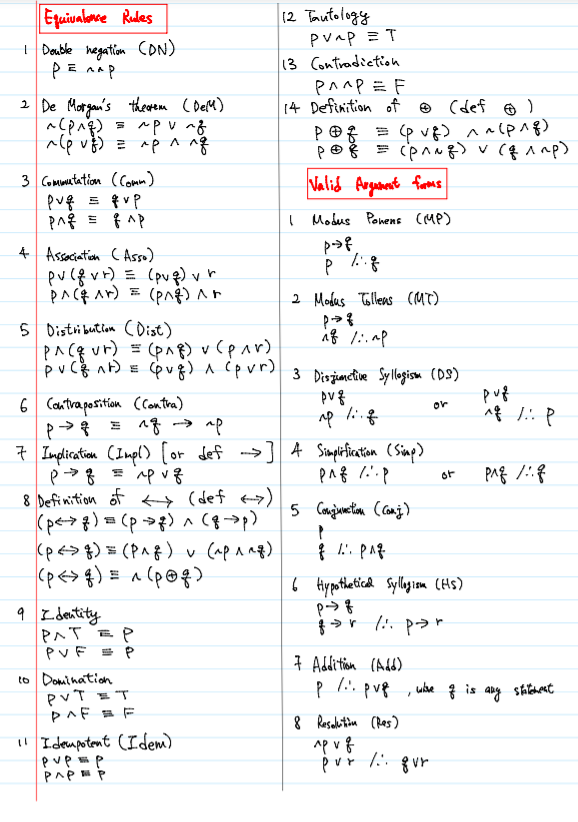 Equivalence Rules
1 Double negation (DN)
p ≡ ~~p
2 De Morgan's theorem (DeM)
~(p∧q) ≡ ~p ∨ ~q
~(p∨q) ≡ ~p ∧ ~q
3 Commutation (Comm)
p∨q ≡ q∨p
p∧q ≡ q∧p
4 Association (Asso)
p∨(q∨r) ≡ (p∨q)∨r
p∧(q∧r) ≡ (p∧q)∧r
5 Distribution (Dist)
p∧(q∨r) ≡ (p∧q)∨(p∧r)
p∨(q∧r) ≡ (p∨q)∧(p∨r)
6 Contraposition (Contra)
p→q ≡ ~q → ~p
7 Implication (Impl) [or def →]
p→q ≡ ~p∨q
8 Definition of ↔ (def ↔)
(p↔q) ≡ (p→q) ∧ (q→p)
(p↔q) ≡ (p∧q) ∨ (~p∧~q)
(p↔q) ≡ ~(p⊕q)
9 Identity
p∧T ≡ p
p∨F ≡ p
10 Domination
p∨T ≡ T
p∧F ≡ F
11 Idempotent (Idem)
p∨p ≡ p
p∧p ≡ p
12 Tautology
p∨~p ≡ T
13 Contradiction
p∧~p ≡ F
14 Definition of ⊕ (def ⊕)
p⊕q ≡ (p∨q) ∧ ~(p∧q)
p⊕q ≡ (p∧~q) ∨ (q∧~p)
Valid Argument forms
1 Modus Ponens (MP)
p→q
p /∴ q
2 Modus Tollens (MT)
p→q
~q /∴ ~p
3 Disjunctive Syllogism (DS)
p∨q or p∨q
~p /∴ q ~q /∴ p
4 Simplification (Simp)
p∧q /∴ p or p∧q /∴ q
5 Conjunction (Conj)
p
q /∴ p∧q
6 Hypothetical Syllogism (HS)
p→q
q→r /∴ p→r
7 Addition (Add)
p /∴ p∨q , where q is any statement
8 Resolution (Res)
~p∨q
p∨r /∴ q∨r